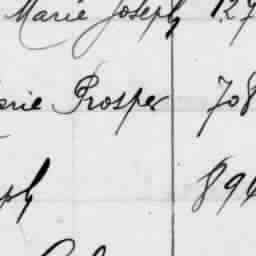 Marie Joseph 127
arie Prosper 708
ph 896